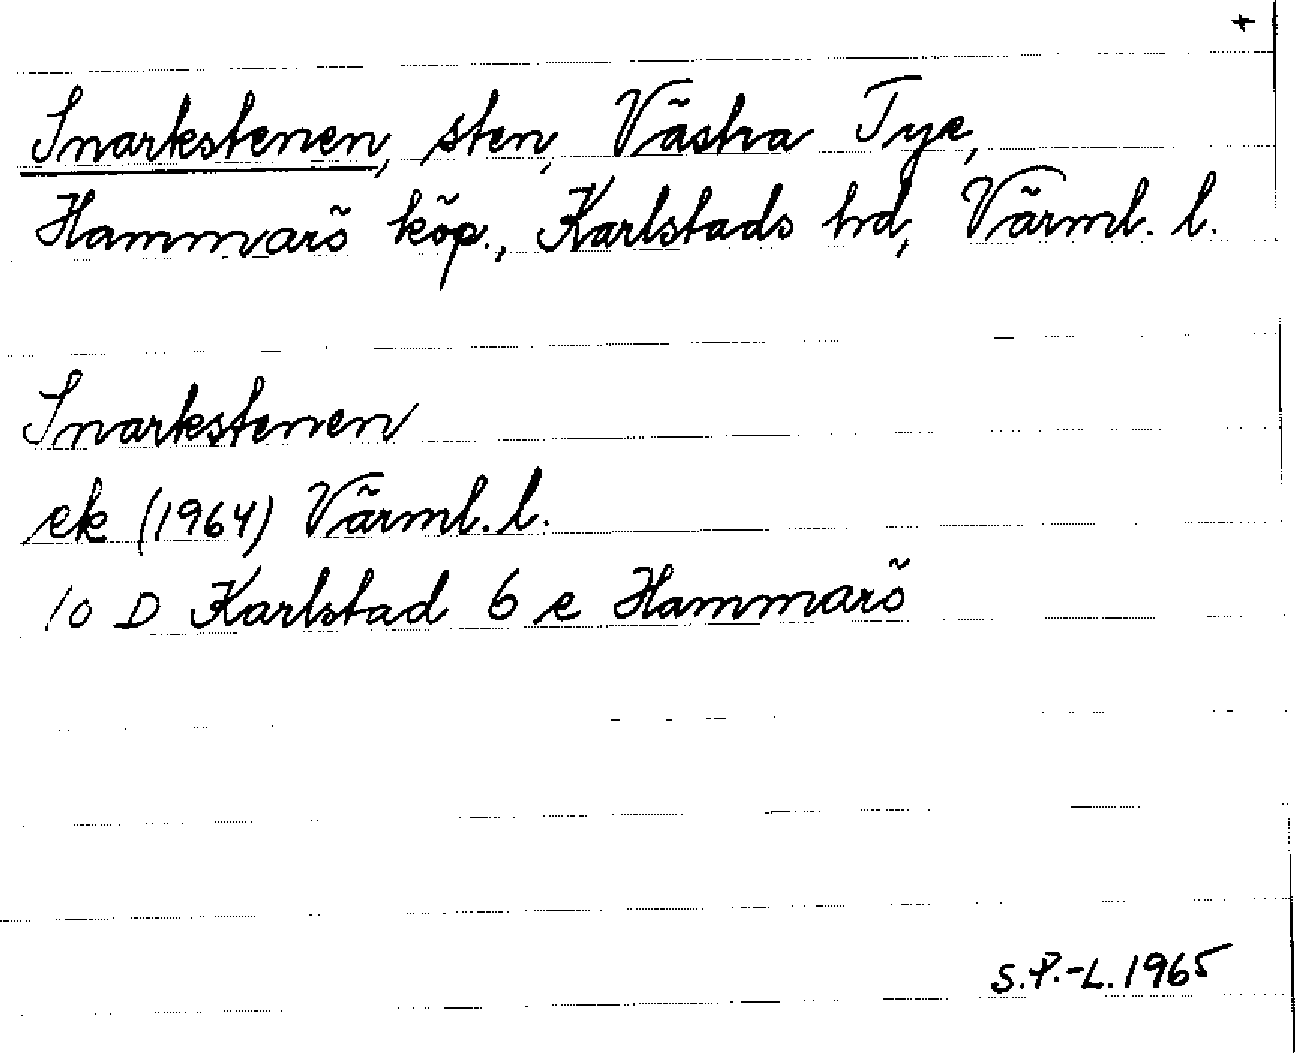 +
Snarkstenen, sten, Västra Tye,
Hammarö köp., Karlstads hd, Värml. l.
Snarkstenen
ek (1964) Värml. l.
10 D Karlstad 6 e Hammarö
S.P.-L. 1965